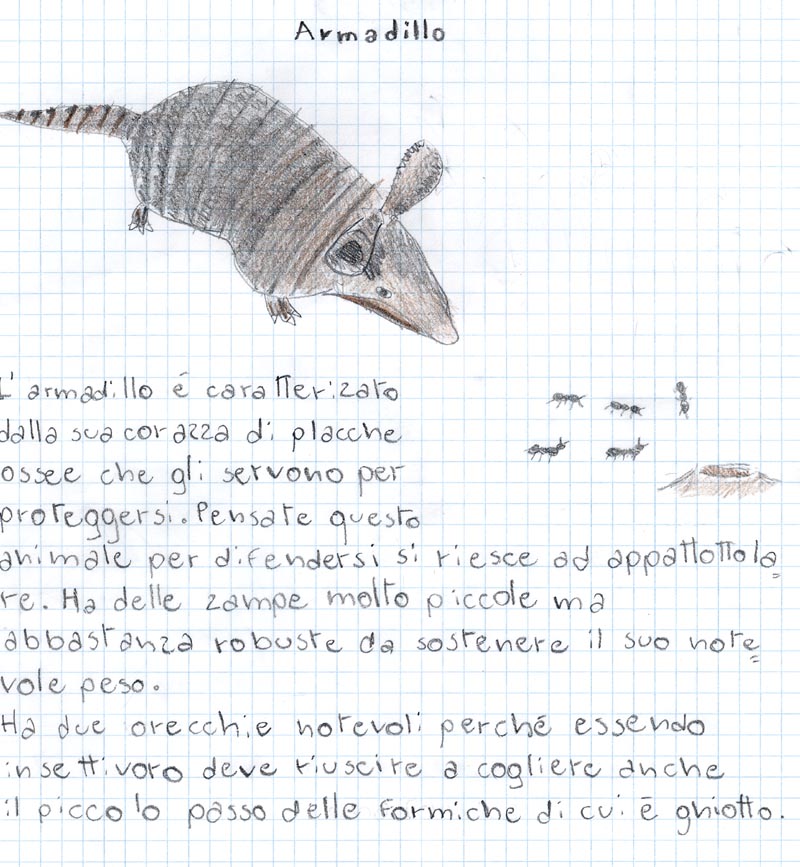 Armadillo
L'armadillo é caratterizato
dalla sua corazza di placche
ossee che gli servono per
proteggersi. Pensate questo
animale per difendersi si riesce ad appattottola
re. Ha delle zampe molto piccole ma
abbastanza robuste da sostenere il suo note
vole peso.
Ha due orecchie notevoli perché essendo
insettivoro deve riuscire a cogliere anche
il piccolo passo delle formiche di cui é ghiotto.